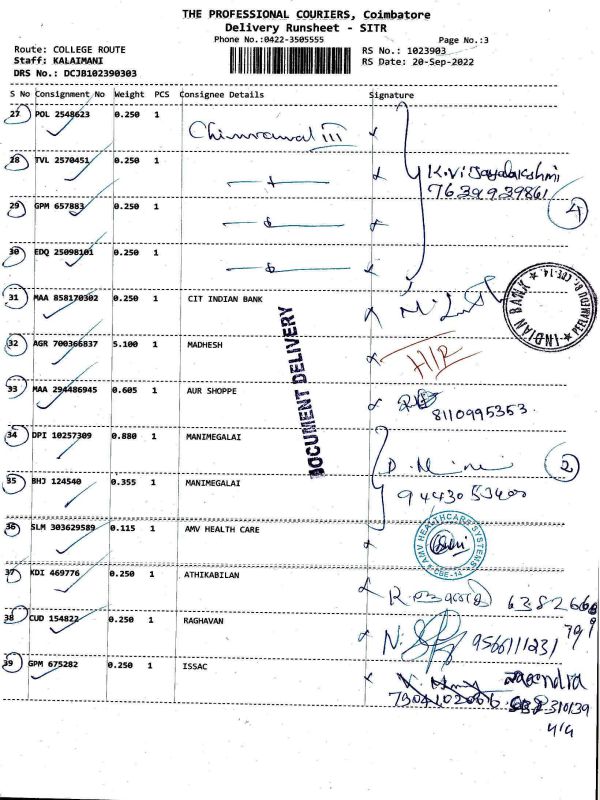 THE PROFESSIONAL COURIERS, Coimbatore
Delivery Runsheet - SITR
Phone No.:0422-3505555
Page No.:3
Route: COLLEGE ROUTE
RS No.: 1023903
Staff: KALAIMANI
RS Date: 20-Sep-2022
DRS No.: DCJB102390303
S No Consignment No Weight PCS Consignee Details Signature
27 POL 2548623 0.250 1
28 TVL 2570451 0.250 1
K.Vijayalakshmi
7639939861
29 GPM 657883 0.250 1
4
30 EDQ 25098101 0.250 1
31 MAA 858170302 0.250 1 CIT INDIAN BANK
INDIAN BANK
32 AGR 700366837 5.100 1 MADHESH
DOCUMENT DELIVERY
33 MAA 294486945 0.605 1 AUR SHOPPE
8110995353
34 DPI 10257309 0.880 1 MANIMEGALAI
2
35 BHJ 124540 0.355 1 MANIMEGALAI
36 SLM 303629589 0.115 1 AMV HEALTH CARE
AMV HEALTHCARE SYSTEMS
CBE-14
37 KDI 469776 0.250 1 ATHIKABILAN
38 CUD 154822 0.250 1 RAGHAVAN
9566111231
39 GPM 675282 0.250 1 ISSAC